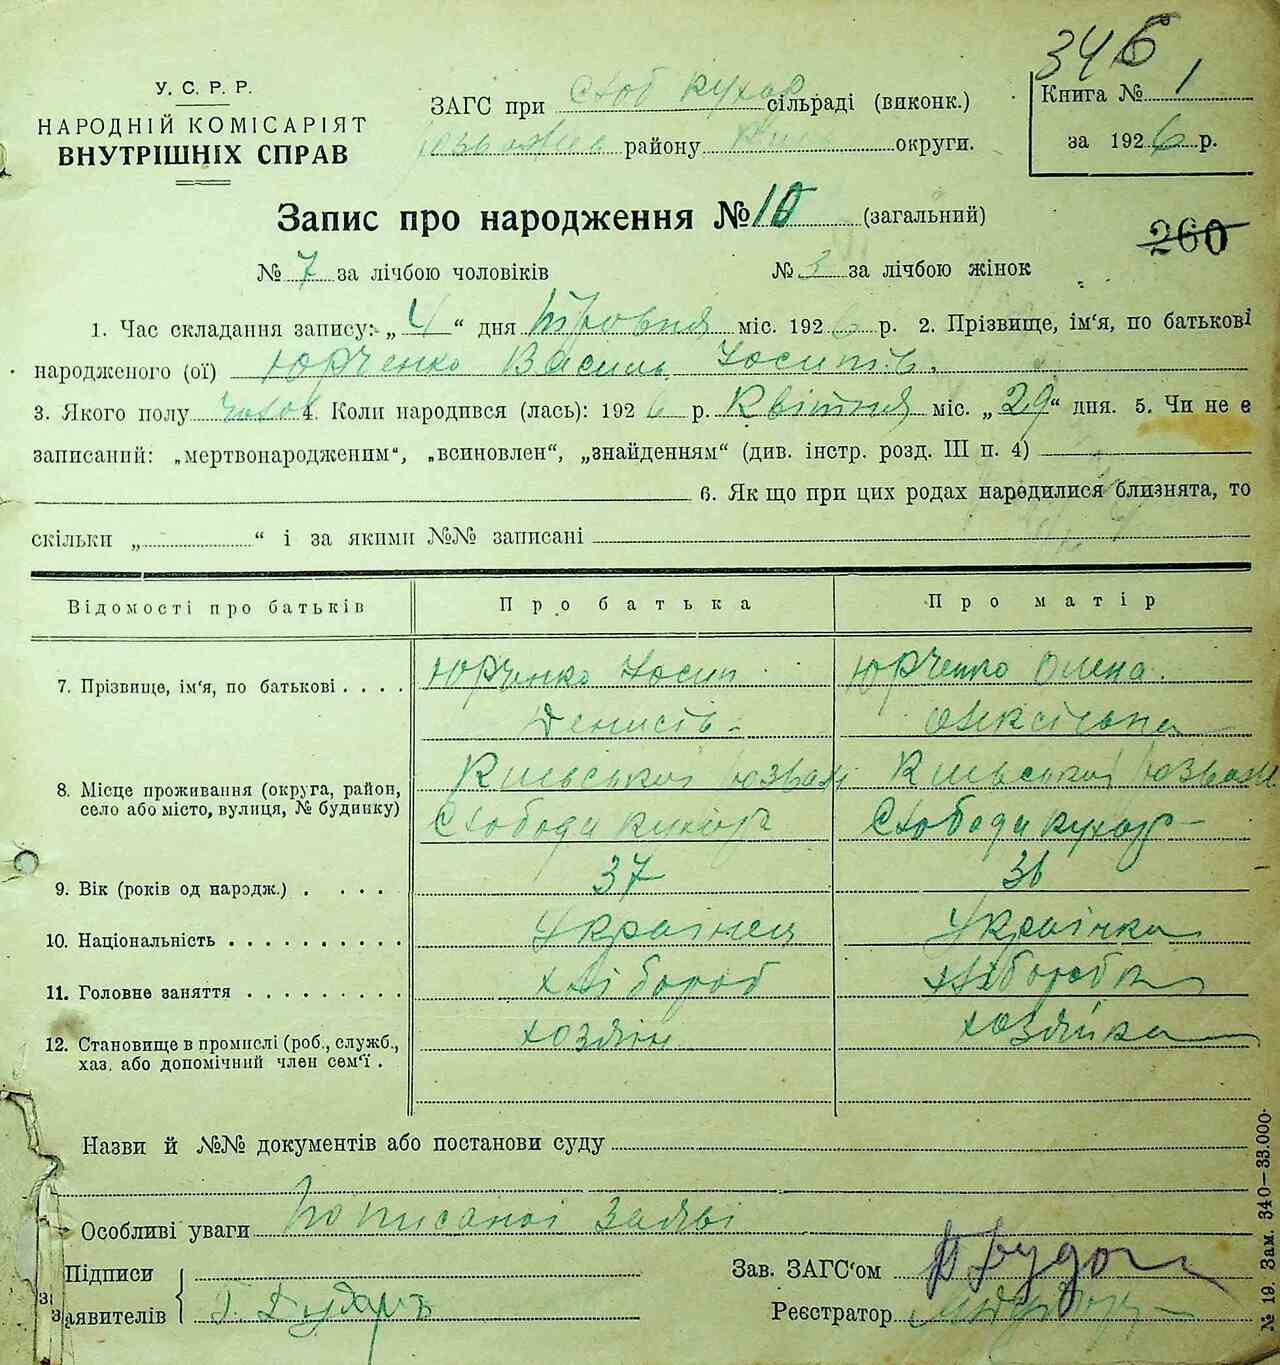 346
У. С. Р. Р.
НАРОДНІЙ КОМІСАРІЯТ
ВНУТРІШНІХ СПРАВ
ЗАГС при Слоб Кухар сільраді (виконк.)
району округи.
Книга № 1
за 1926 р.
Запис про народження № 10 (загальний)
260
№ 7 за лічбою чоловіків № 3 за лічбою жінок
1. Час складання запису: „ 4 “ дня Травня міс. 1926 р. 2. Прізвище, ім‘я, по батькові
народженого (ої) Юрченко Василь Йосипів.
3. Якого полу чолов 4. Коли народився (лась): 1926 р. Квітня міс. „ 29 “ дня. 5. Чи не є
записаний: „мертвонародженим“, „всиновлен“, „знайденням“ (див. інстр. розд. III п. 4)
6. Як що при цих родах народилися близнята, то
скільки „ “ і за якими №№ записані
Відомості про батьків Про батька Про матір
7. Прізвище, ім‘я, по батькові . . . . Юрченко Йосип Юрченко Олена.
Денисів Олексіївна
8. Місце проживання (округа, район, Київської Розваж Київської Розваж
село або місто, вулиця, № будинку) Слобода Кухар Слобода Кухар
9. Вік (років од народж.) . . . . 37 36
10. Національність . . . . . . . . . . Українец Українка
11. Головне заняття . . . . . . . . . хлібороб хліборобка
12. Становище в промислі (роб., служб., хозяїн хозяйка
хаз. або допомічний член сем‘ї .
Назви й №№ документів або постанови суду
Особливі уваги заяві
Підписи
заявителів
Зав. ЗАГС‘ом
Реєстратор
№ 19. Зам. 340—33.000.